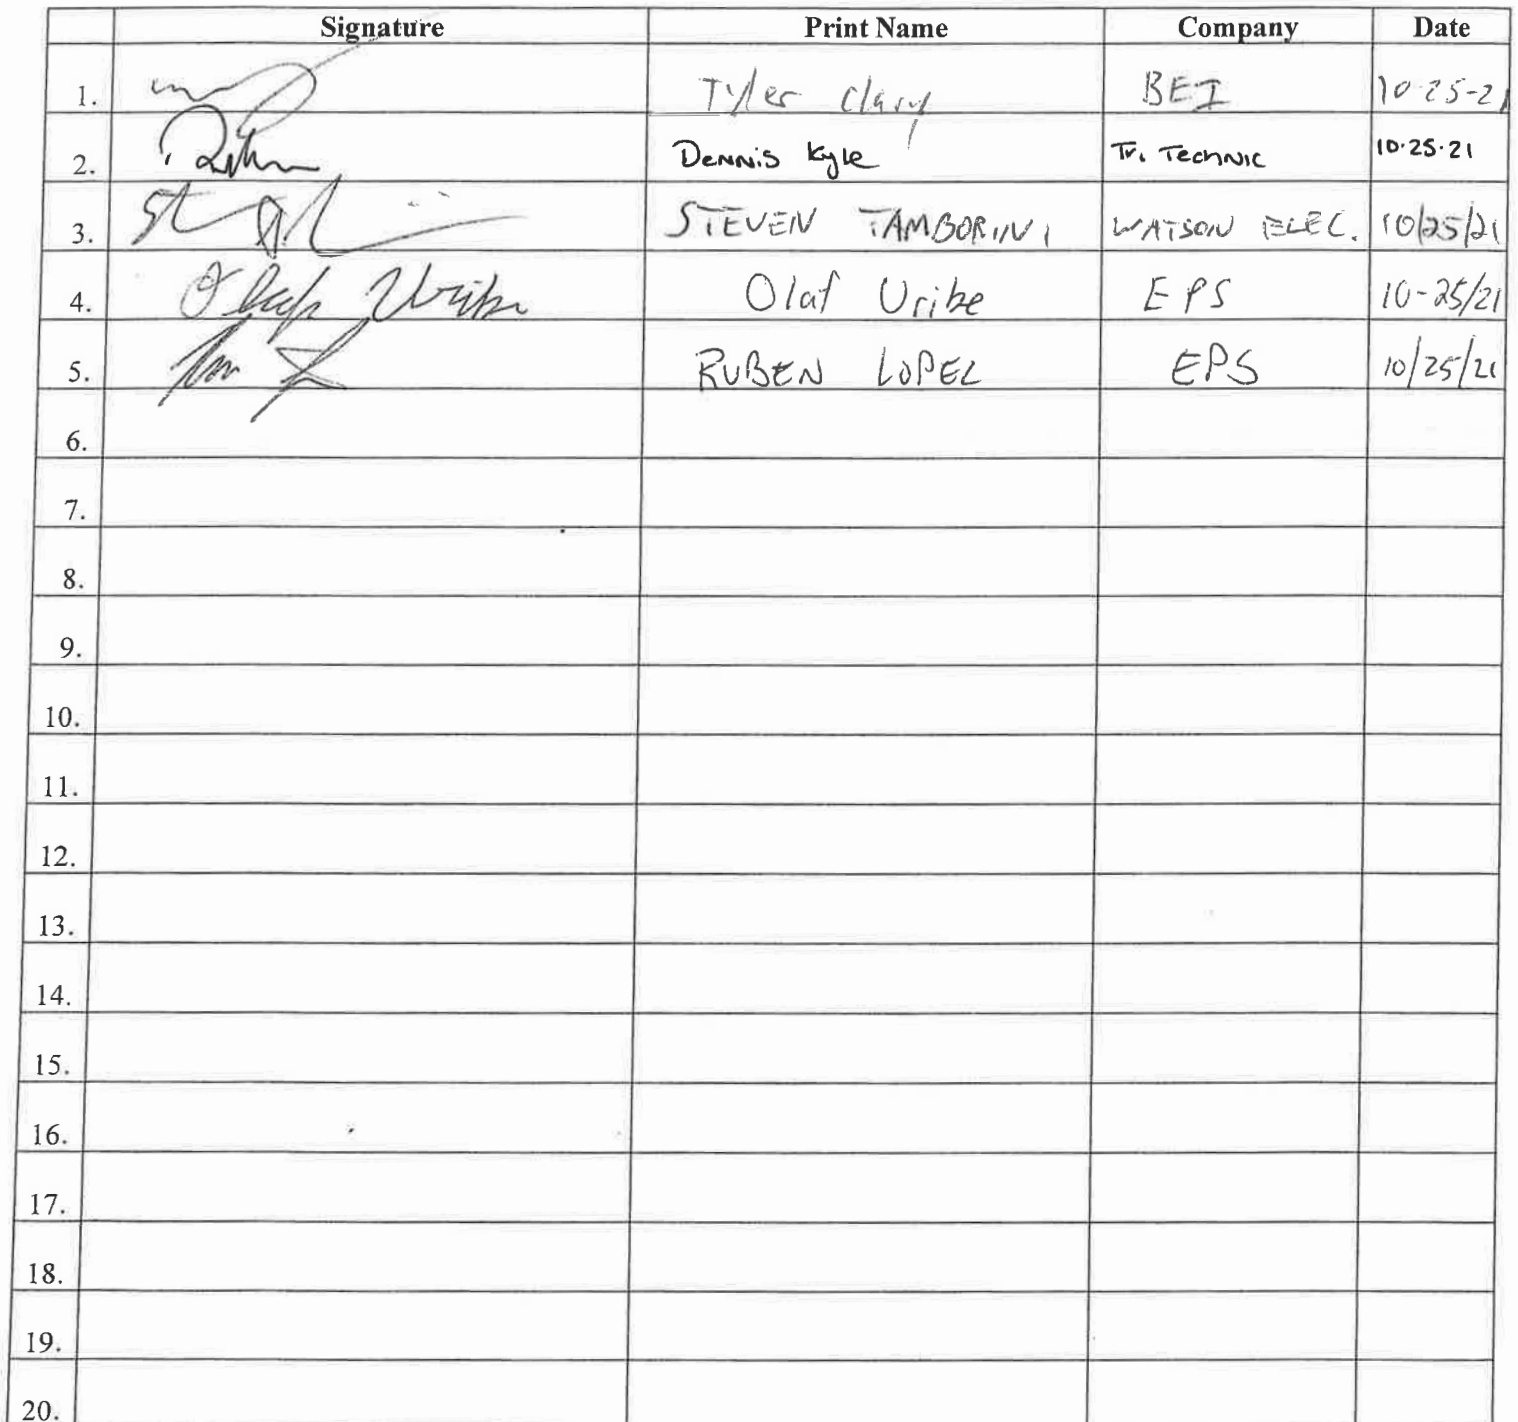 Signature Print Name Company Date
1. Tyler Clary BEI 10-25-21
2. Dennis Kyle Tri Technic 10.25.21
3. STEVEN TAMBORINI WATSON ELEC. 10/25/21
4. Olaf Uribe Olaf Uribe EPS 10-25/21
5. RUBEN LOPEZ EPS 10/25/21
6.
7.
8.
9.
10.
11.
12.
13.
14.
15.
16.
17.
18.
19.
20.